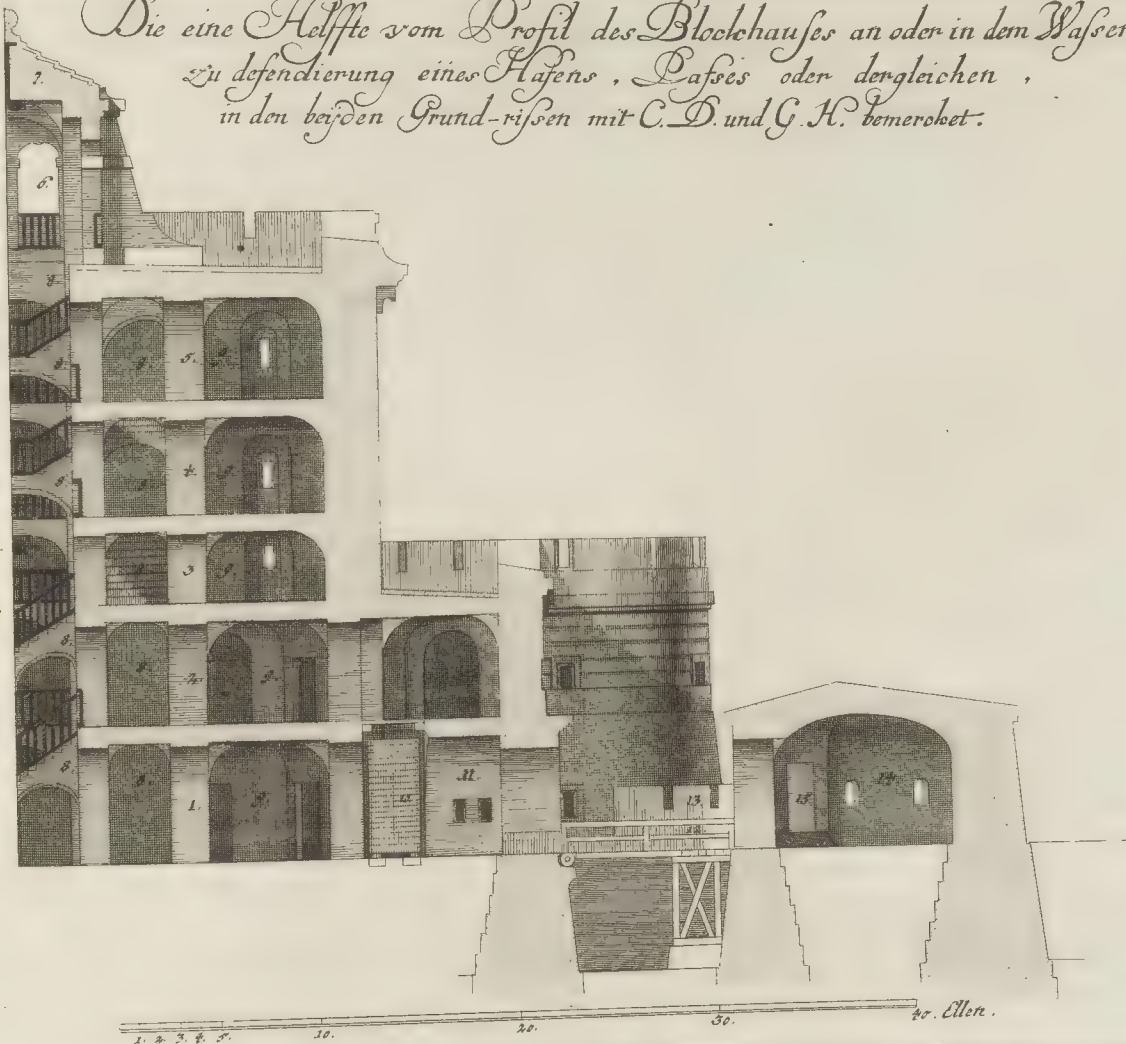 Die eine Helffte vom Profil des Blockhauses an oder in dem Wasser
zu defendierung eines Hafens, Passes oder dergleichen,
in den beyden Grund-rissen mit C. D. und G. H. bemercket.
7.
6.
8.
8.
5.
9.
8.
4.
9.
3
9.
8.
2.
9.
8.
8.
1.
11.
13.
15.
14.
1. 2. 3. 4. 5. 10. 20. 30. 40. Ellen.